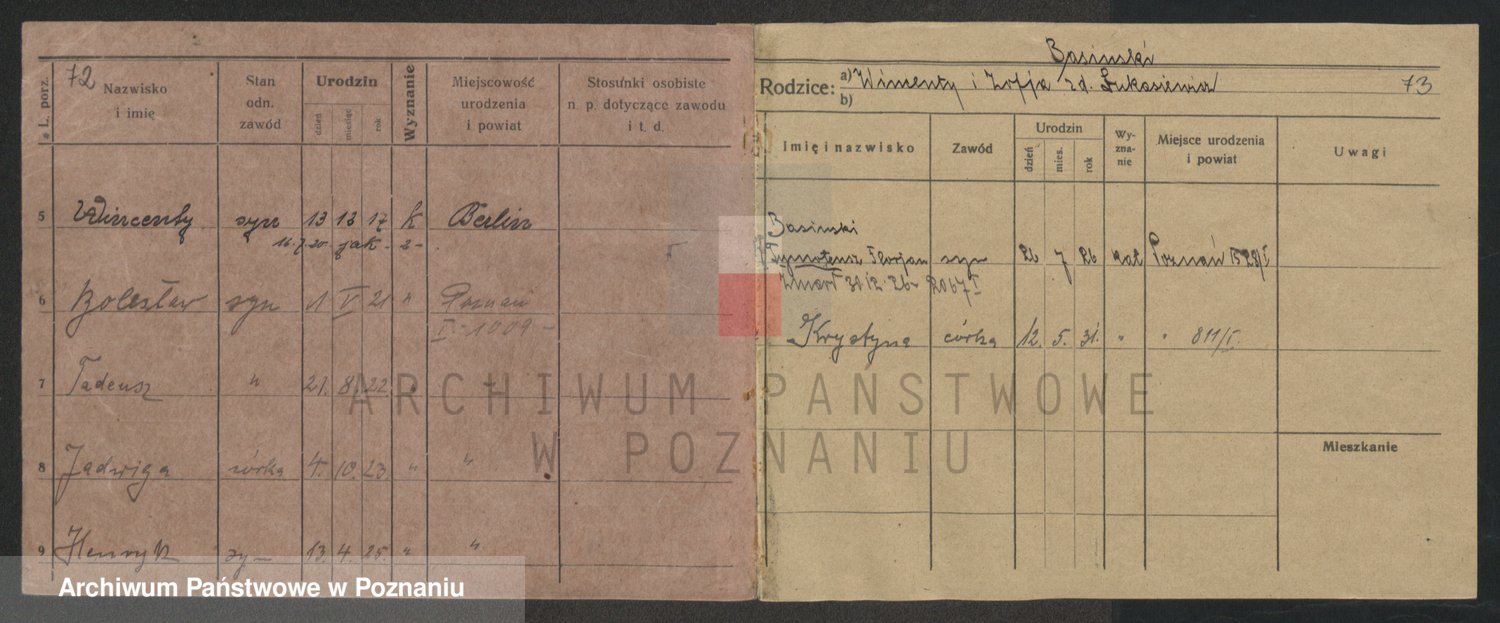 72
L. porz.
Nazwisko i imię
Stan odn. zawód
Urodzin
dzień
miesiąc
rok
Wyznanie
Miejscowość urodzenia i powiat
Stosunki osobiste n. p. dotyczące zawodu i t. d.
5 Wincenty syn 13 12 17 k Berlin
16.7.20. jak 2-
6 Bolesław syn 1 V 21 " Poznań
I - 1009 -
7 Tadeusz " 21. 8. 22 " "
8 Jadwiga córka 4. 10. 23. " "
9 Henryk sy— 13. 4. 25. " "
Basinski
Rodzice: a) Wincenty i Zofja zd. Łukasiewicz 73
b)
Imię i nazwisko
Zawód
Urodzin
dzień
mies.
rok
Wy-
zna-
nie
Miejsce urodzenia i powiat
Uwagi
Basinski
Tymoteusz Florjan syn 26 7 26 kat Poznań
Zmarł 31.12.26- 2067 I
Krystyna córka 12. 5. 31. " " 811/I.
Mieszkanie
ARCHIWUM PAŃSTWOWE
W POZNANIU
Archiwum Państwowe w Poznaniu